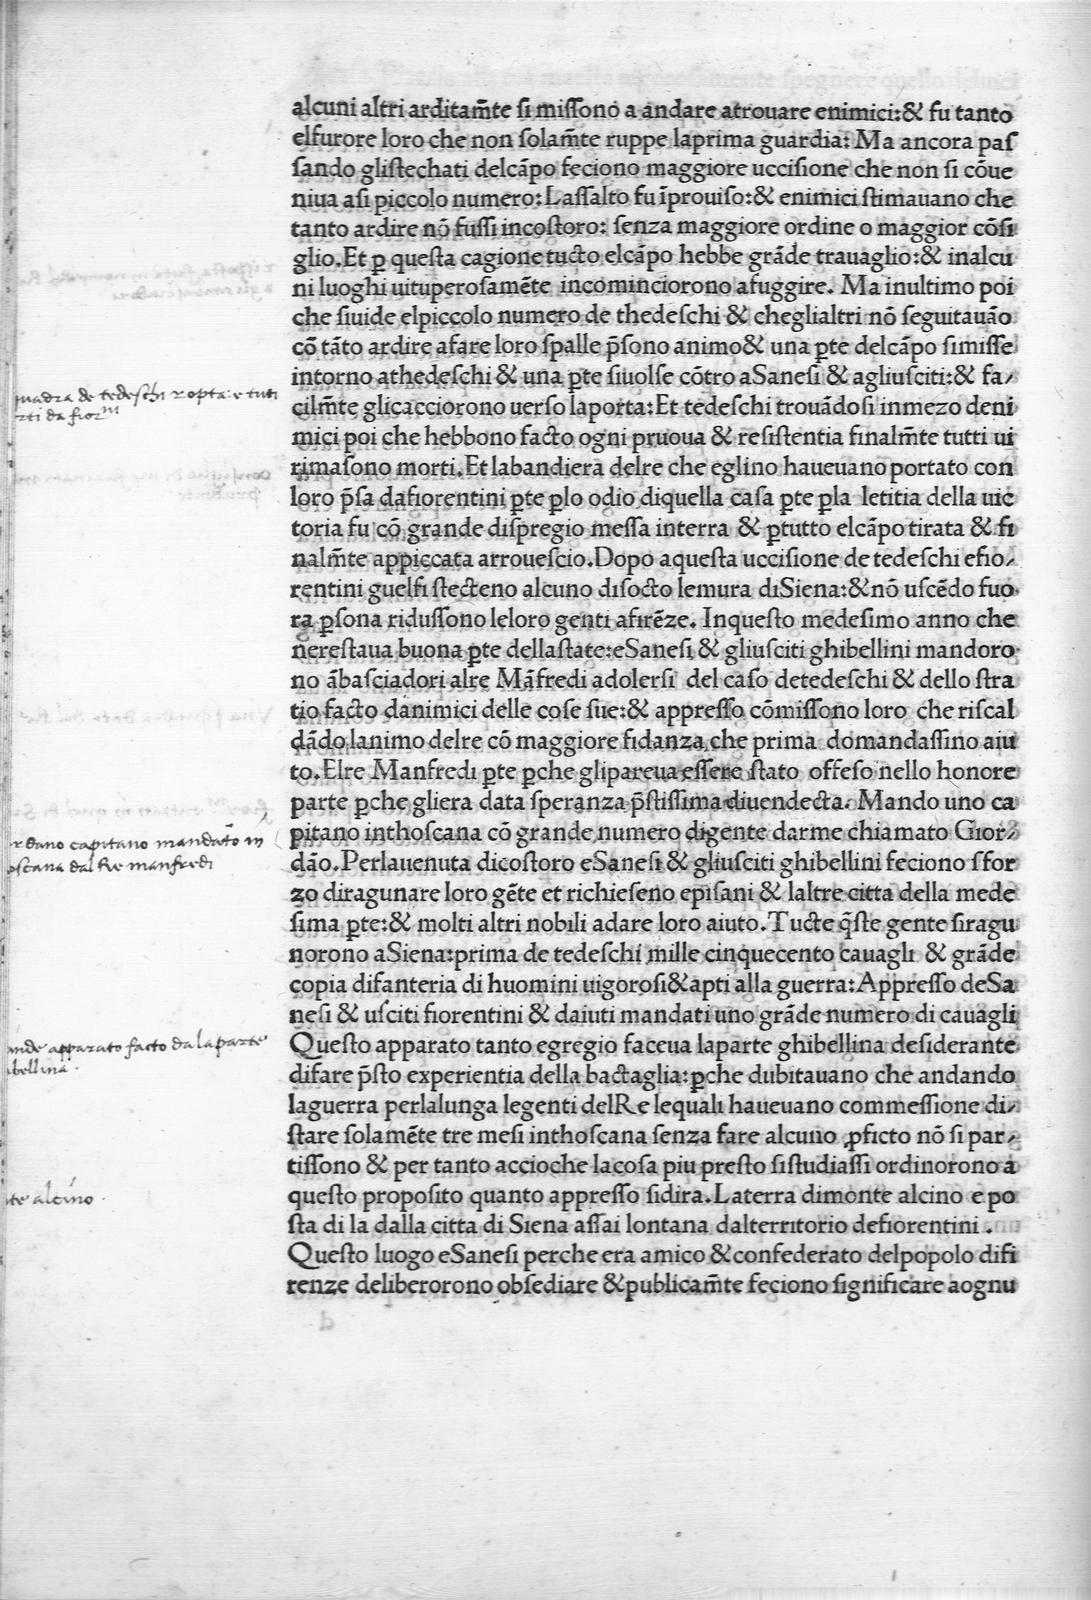 alcuni altri arditam̄te ſi miſſono a andare atrouare enimici:& fu tanto
elfurore loro che non ſolam̄te ruppe laprima guardia: Ma ancora paſ
ſando gliſtechati delcāpo feciono maggiore ucciſione che non ſi cōue
niua aſi piccolo numero: Laſſalto fu īprouiſo:& enimici ſtimauano che
tanto ardire nō fuſſi incoſtoro: ſenza maggiore ordine o maggior cōſi
glio. Et ꝑ queſta cagione tucto elcāpo hebbe grāde trauaglio:& inalcu
ni luoghi uituperoſamēte incominciorono afuggire. Ma inultimo poi
che ſiuide elpiccolo numero de thedeſchi & cheglialtri nō ſeguitauāo
cō tāto ardire afare loro ſpalle p̄ſono animo& una ꝑte delcāpo ſimiſſe
intorno athedeſchi & una ꝑte ſiuolſe cōtro aSaneſi & agliuſciti:& fa⸗
cilm̄te glicacciorono uerſo laporta: Et tedeſchi trouādoſi inmezo deni
mici poi che hebbono facto ogni pruoua & reſiſtentia finalm̄te tutti ui
rimaſono morti. Et labandiera delre che eglino haueuano portato con
loro p̄ſa dafiorentini ꝑte ꝑlo odio diquella caſa ꝑte ꝑla letitia della uic
toria fu cō grande diſpregio meſſa interra & ꝑtutto elcāpo tirata & fi
nalm̄te appiccata arroueſcio. Dopo aqueſta ucciſione de tedeſchi efio⸗
rentini guelfi ſtecteno alcuno diſocto lemura diSiena:& nō uſcēdo fuo
ra ꝑſona riduſſono leloro genti afirēze. Inqueſto medeſimo anno che
nereſtaua buona ꝑte dellaſtate: eSaneſi & gliuſciti ghibellini mandoro
no ābaſciadori alre Māfredi adolerſi del caſo detedeſchi & dello ſtra
tio facto danimici delle coſe ſue:& appreſſo cōmiſſono loro che riſcal
dādo lanimo delre cō maggiore fidanza che prima domandaſſino aiu
to. Elre Manfredi ꝑte ꝑche glipareua eſſere ſtato offeſo nello honore
parte ꝑche gliera data ſperanza p̄ſtiſſima diuendecta. Mando uno ca
pitano inthoſcana cō grande numero digente darme chiamato Gior⸗
dāo. Perlauenuta dicoſtoro eSaneſi & gliuſciti ghibellini feciono sfor
zo diragunare loro gēte et richieſeno epiſani & laltre citta della mede
ſima ꝑte:& molti altri nobili adare loro aiuto. Tucte q̄ſte gente ſiragu
norono aSiena: prima de tedeſchi mille cinquecento cauagli & grāde
copia difanteria di huomini uigoroſi& apti alla guerra: Appreſſo deSa
neſi & uſciti fiorentini & daiuti mandati uno grāde numero di cauagli
Queſto apparato tanto egregio faceua laparte ghibellina deſiderante
difare p̄ſto experientia della bactaglia: ꝑche dubitauano che andando
laguerra perlalunga legenti delRe lequali haueuano commeſſione di⸗
ſtare ſolamēte tre meſi inthoſcana ſenza fare alcuno ꝓficto nō ſi par⸗
tiſſono & per tanto accioche lacoſa piu preſto ſiſtudiaſſi ordinorono a
queſto propoſito quanto appreſſo ſidira. Laterra dimonte alcino e po
ſta di la dalla citta di Siena aſſai lontana dalterritorio defiorentini .
Queſto luogo eSaneſi perche era amico & confederato delpopolo difi
renze deliberorono obſediare & publicam̄te feciono ſignificare aognu
uadra de tedeschi ropta: e tuti
rti da fior^ni
rdano capitano mandato in
oscana dal Re manfredi
ande apparato facto da la parte
bellina.
te alcino.